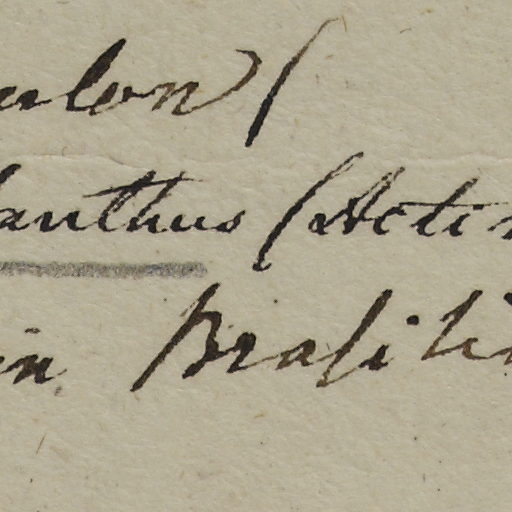 ulon (
lanthus (Actin
in Brasilia